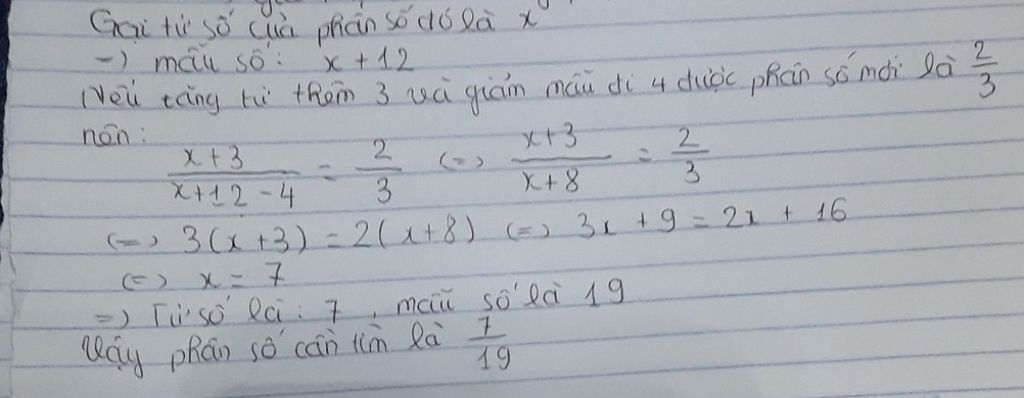 Gọi tử số của phân số đó là x
=> mẫu số: x + 12
Nếu tăng tử thêm 3 và giảm mẫu đi 4 được phân số mới là 2/3
nên:
(x+3)/(x+12-4) = 2/3 <=> (x+3)/(x+8) = 2/3
<=> 3(x+3) = 2(x+8) <=> 3x + 9 = 2x + 16
<=> x = 7
=> Tử số là: 7, mẫu số là 19
Vậy phân số cần tìm là 7/19